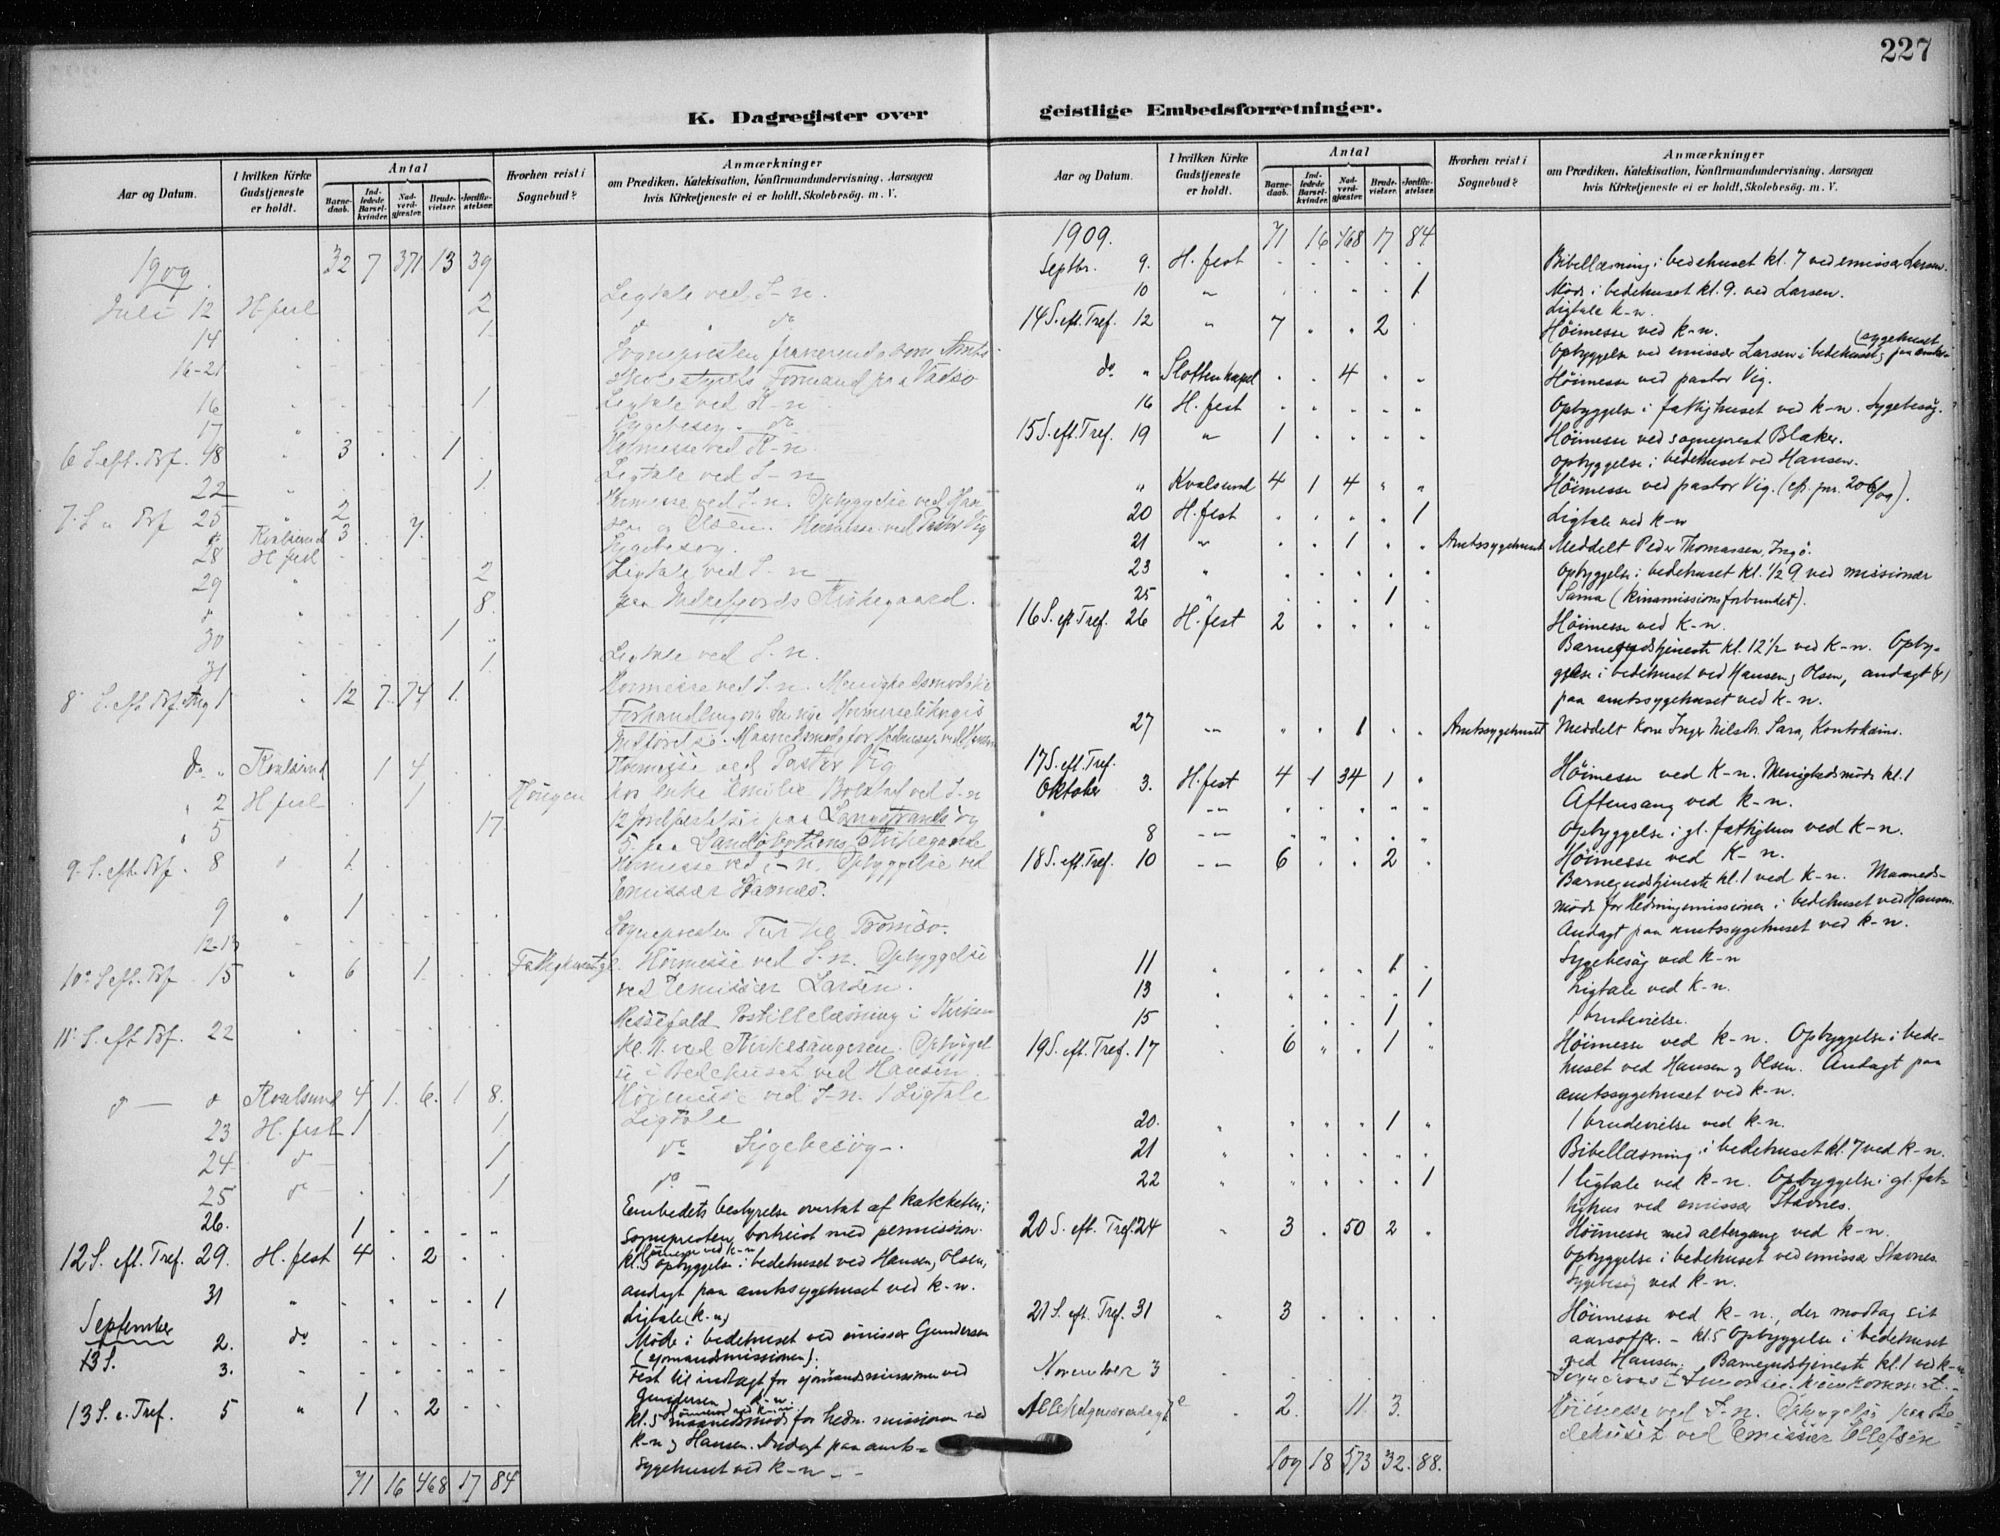 227
K. Dagregister over
Aar og Datum.
I hvilken Kirke Gudstjeneste er holdt.
Antal
Barnedaab.
Indledede Barselkvinder.
Nadverdgjæster.
Brudevielser.
Jordfæstelser.
Hvorhen reist i Sognebud?
Anmærkninger
om Prædiken, Katekisation, Konfirmandundervisning, Aarsagen
hvis Kirketjeneste ei er holdt, Skolebesög. m. V.
1909 32 7 371 13 39
Juli 12 H.fest 2 Ligtale ved S-n.
14 1 do " do
16-21 Sognepresten fraværende som Amts
Skolestyrets Formand paa Vadsø
16 1 Ligtale ved K-n
17 Sygebesøg do
6 S. eft. Trf. 18 3 1 Høimesse ved K-n
22 1 Ligtale ved S-n
7 S. e Trf 25 2 Høimesse ved S-n. Opbyggelse ved Han-
" Kvalsund 3 7 sen og Olsen. Høimesse ved Pastor Vig
28 H fest Sygebesøg.
29 2 Ligtale ved S-n
" 8. paa Indrefjords Kirkegaard.
30 1
31 1 Ligtale ved S-n.
8 S. eft Trf. Aug 1 12 7 74 1 Høimesse ved S-n. Menighedsmøde
do " Kvalsund 1 4 Høimesse ved Pastor Vig
" 2 H fest 1 Haugen hos enke Emilie ved S-n
" 5 17 12 jordfæstelser paa
Kirkegaarde
9. S. eft. Trf. 8 1 Høimesse ved S-n. Opbyggelse ved
Emissær Stavnes.
9 1
12-13 Sognepresten Tur til Tromsø.
10 S eft. Trf 15 6 1 Høimesse ved S-n. Opbyggelse
ved Emissær Larsen.
11 S. eft Trf. 22 Messefald. Postillelæsning i Kirken
kl. 11 ved Kirkesangeren. Opbygel
se i Bedehuset ved Hansen
do Kvalsund 4 1. 6. 1 8. Høimesse ved S-n. 1 Ligtale
23 H. fest 1 1 Ligtale
24 do 1 do Sygebesøg.
25 do 1 do
26. 1 Embedets bestyrelse overtat af kateketen;
Sognepresten bortreist med permission.
Høimesse ved k-n
12 S. eft. Tref. 29. H. fest 4 2 kl. 5 opbyggelse i bedehuset ved Hansen, Olsen,
andagt paa amtssygehuset ved k-n.
31 " 1 Ligtale (k-n)
September 2. do Møde i bedehuset ved emissær Gundersen
(sjømandsmissionen).
13 S. 3. Fest til indtægt for sjømandsmissionen ved
Gundersen k-n.
13 S. e. Tref. 5 " 1 2 kl. 5 maanedsmøde for hedn. missionen ved
k-n og Hansen. Andagt paa amts-
sygehuset ved k-n
71 16 468 17 84
geistlige Embedsforretninger.
Aar og Datum.
I hvilken Kirke Gudstjeneste er holdt.
Antal
Barnedaab.
Indledede Barselkvinder.
Nadverdgjæster.
Brudevielser.
Jordfæstelser.
Hvorhen reist i Sognebud?
Anmærkninger
om Prædiken, Katekisation, Konfirmandundervisning, Aarsagen
hvis Kirketjeneste ei er holdt, Skolebesög. m. V.
1909. 71 16 468 17 84
Septbr. 9. H. fest Bibellæsning i bedehuset kl. 7 ved emissær Larsen.
10 " 1 Møde i bedehuset kl. 9. ved Larsen.
Ligtale k-n.
14 S. eft. Tref. 12 " 7 2 Høimesse ved k-n.
(sygehuset
Opbyggelse ved emissær Larsen i bedehuset, paa amts-
do " Slotten kapel 4 Høimesse ved pastor Vig.
16 H. fest Opbyggelse i fattighuset ved k-n. Sygebesøg.
15 S. eft. Tref. 19 " 1 Høimesse ved sogneprest Blaker.
opbyggelse i bedehuset ved Hansen.
" Kvalsund 4 1 4 Høimesse ved pastor Vig.
20 H. fest 1 Ligtale ved k-n
21 " 1 Amtssygehuset Meddelt Peder Thomassen, Ingö.
23 " Opbyggelse i bedehuset kl. 1/2 9 ved missionær
25 " 1 Sama (Kinamissionsforbundet).
16 S. eft Tref. 26 H. fest 2 Høimesse ved k-n.
Barnegudstjeneste kl. 12 1/2 ved k-n. Opby-
gelse i bedehuset ved Hansen, Olsen, andagt
paa amtssygehuset ved k-n.
27 " 1 Amtssygehuset Meddelt Kone Inger Nilsdr. Sara, Kautokeino.
17 S. eft. Tref.
Oktober 3. H. fest 4 1 34 1 Høimesse ved k-n. Menighedsmøde kl. 1
" Aftensang ved k-n.
8 " Opbyggelse i gl. fattighus ved k-n.
18 S. eft. Tref. 10 " 6 2 Høimesse ved k-n.
Barnegudstjeneste kl. 1 ved k-n. Maaneds-
møde for hedningemissionen i bedehuset ved Hansen.
Andagt paa amtssygehuset ved k-n.
11 1 Sygebesøg ved k-n
13 1 Ligtale ved k-n.
15 1 1 brudevielse.
19 S. eft. Tref. 17 6 1 Høimesse ved k-n. Opbyggelse i bede-
huset ved Hansen og Olsen. Andagt paa
amtssygehuset ved k-n.
20. 1 1 brudevielse ved k-n.
21 Bibellæsning i bedehuset kl. 7 ved k-n.
22 1 1 ligtale ved k-n. Opbyggelse i gl. fat-
tighus ved emissær Stavnes.
20 S. eft. Tref. 24 3 50 2 Høimesse med altergang ved k-n.
opbyggelse i bedehuset ved emissær Stavnes.
Sygebesøg ved k-n.
21 S. eft Tref. 31 3 Høimesse ved k-n., der modtog sit
aarsoffer. - kl. 5 Opbyggelse i bedehuset
ved Hansen. Barnegudstjeneste kl. 1 ved k-n
November 3
Allehelgensøndag 7e 2 11 3. Høimesse ved S-n. Opbyggelse paa Be-
dehuset ved Emissær Ellefsen
109 18 573 32. 88.